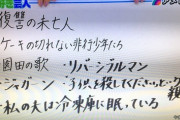 芸人
復讐の未亡人
ケーキの切れない非行少年たち
園田の歌 ・リバーシブルマン
・ジャガーン ・「子供を殺してください」という
親
・私の夫は冷凍庫に眠っている